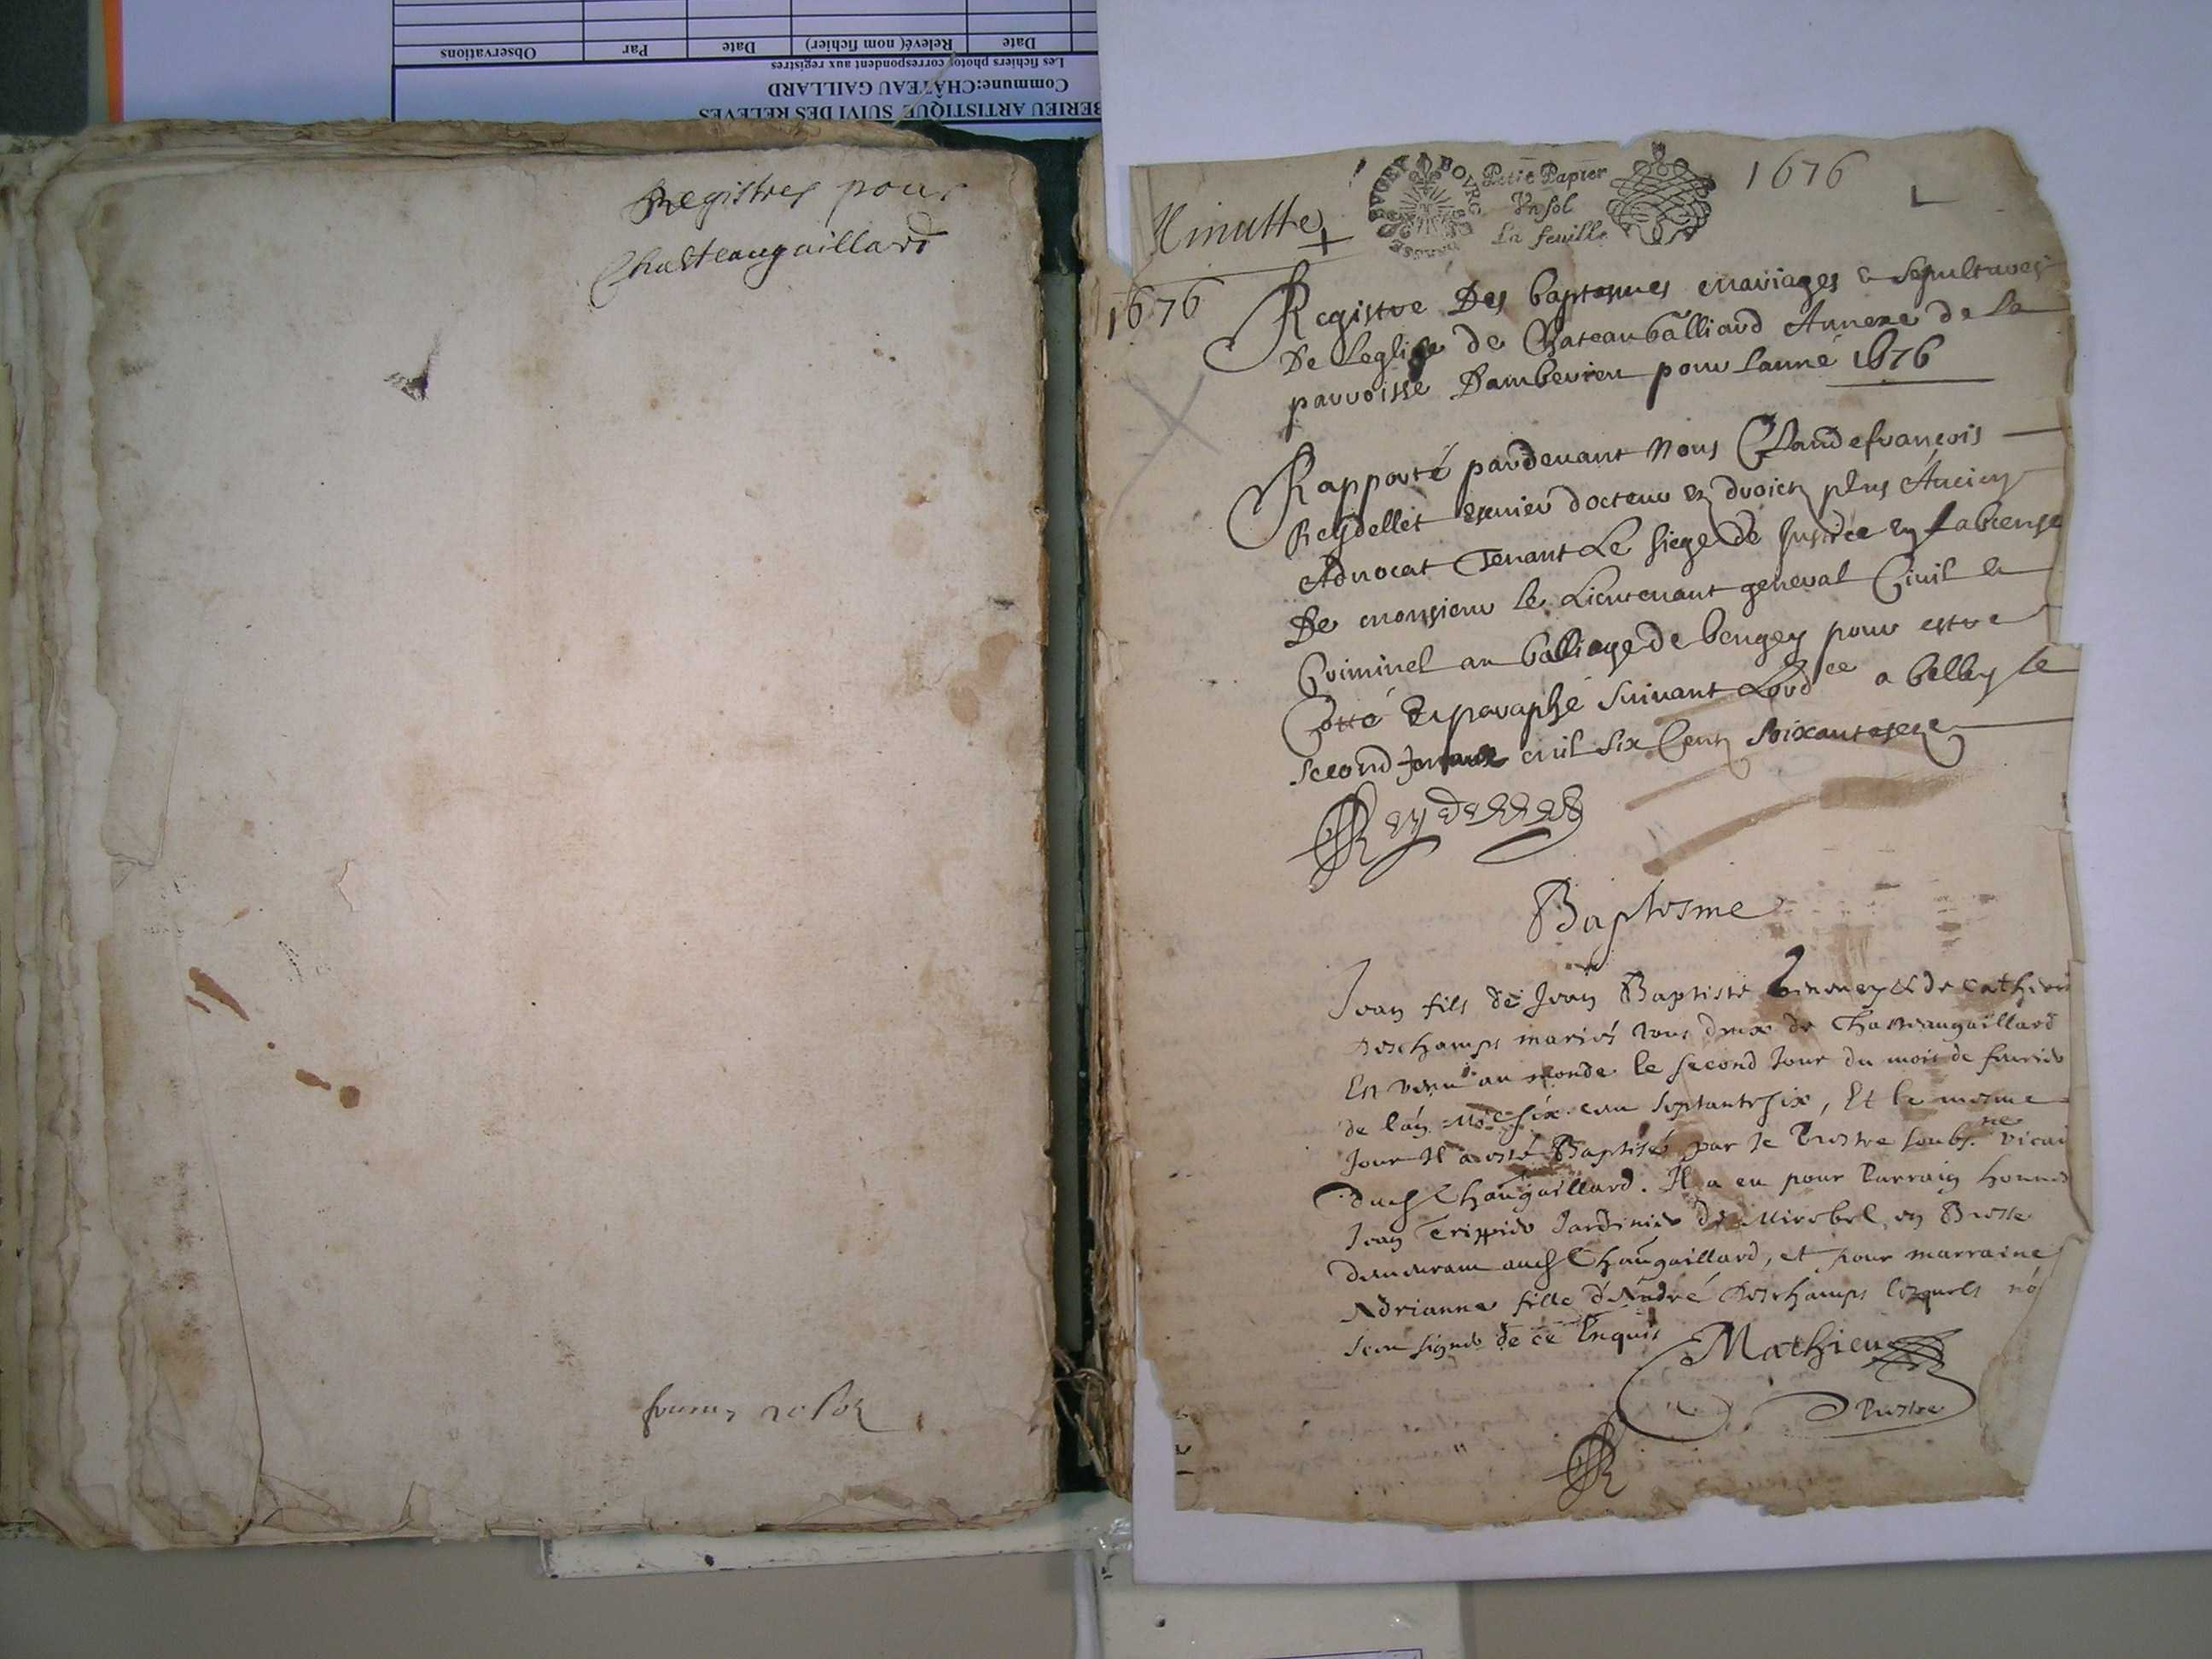 BERIEU ARTISTIQUE SUIVI DES RELEVES
Commune:CHÂTEAU GAILLARD
Les fichiers photos correspondent aux registres
Date Relevé( nom fichier) Date Par Observations
Registres pour
Chasteaugaillard
1676
Minutte
BVGEY BOVRG BRESSE
Petit Papier
Vn sol
La feuille
1676
Registre Des baptesmes mariages & sepultures
De Leglise de Chateaugalliard Annexe de la
parroisse Dambeirieu pour lanné 1676
Rapporté pardevant Nous Claudefrançois
Reydellet escuier docteur en droict plus Ancien
Advocat Tenant Le siege de Justice en labcense
De monsieur le Lieutenant general Civil &
Criminel au balliage de beugey pour estre
Cotté & paraphé suivant Lord ce a belley le
second mil six Cent soixanteseze
Reydellet
Baptesme
Jean fils de Jean Baptiste & de Catheri
Deschamps mariés tous deux de Chasteaugaillard
Est venu au monde le second Jour du mois de fevrier
de l'an mil six cent septantesix, Et le mesme
Jour Il a esté Baptisé par Je Prestre soubs. ne vicai
dud Chaugaillard. Il a eu pour Parrain
Jean Jardinier de Mirebel en Bresse
demeurant aud Chaugaillard, et pour marraine
Adrianne fille d'André Deschamps lesquels nō
sceu signer de ce Enquis
Mathieu
Prestre